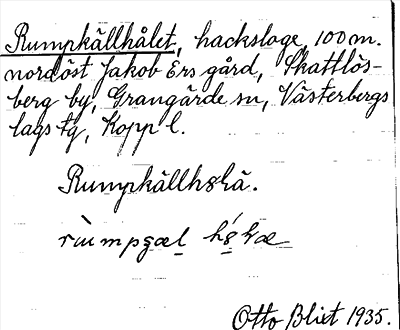 Rumpkällhålet, hackslåge, 100 m.
nordöst Jakob Ers gård, Skattlös-
berg by, Grangärde sn, Västerbergs
lags tg, Kopp l.
Rumpkällhåłä.
Otto Blixt 1935.